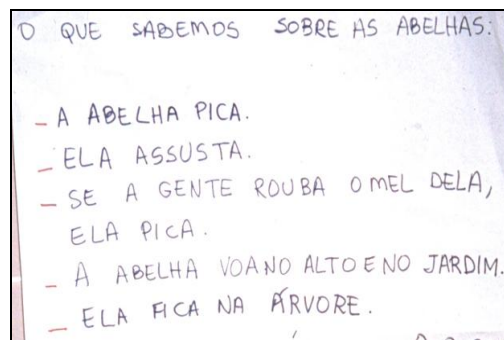 O QUE SABEMOS SOBRE AS ABELHAS:
- A ABELHA PICA.
- ELA ASSUSTA.
- SE A GENTE ROUBA O MEL DELA,
ELA PICA.
- A ABELHA VOA NO ALTO E NO JARDIM.
- ELA FICA NA ÁRVORE.